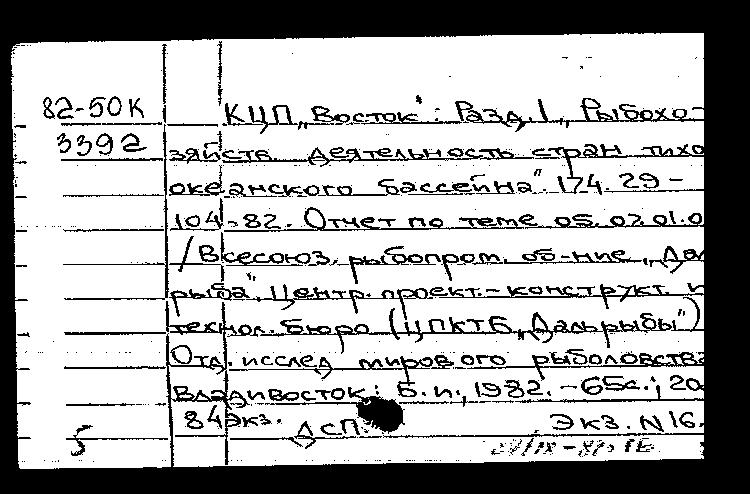 82-50К КЦП „Восток": Разд.1 „Рыбохо-
3392 зяйств. деятельность стран тихо
океанского бассейна". 174. 29 -
104-82. Отчет по теме 05.07.01.0
/Всесоюз. рыбопром. об-ние „Да
рыба", Центр. проект.-конструкт. и
технол. бюро (ЦПКТБ „Дальрыбы")
Отд. исслед мирового рыболовства
Владивосток: Б.и., 1982. - 65с.; 20
84экз. ДСП. Экз. N 16.
5